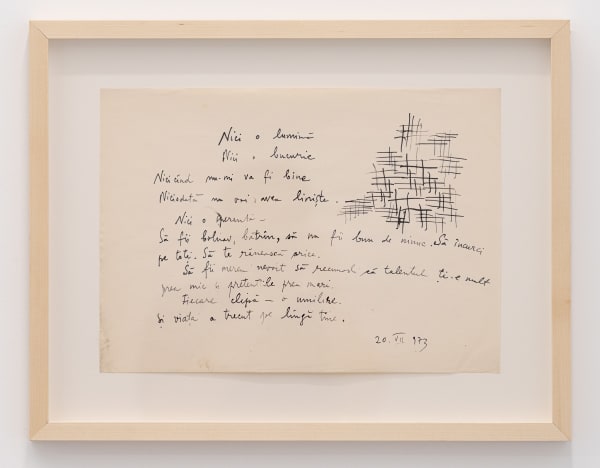 Nici o lumină
Nici o bucurie
Nicicînd nu-mi va fi bine
Niciodată nu voi avea liniște.
Nici o speranță –
Să fii bolnav, bătrîn, să nu fii bun de nimic. Să încurci
pe toți. Să te rănească orice.
Să fii mereu nevoit să recunoști că talentul ți-e mult
prea mic și pretențiile prea mari.
Fiecare clipă – o umilire.
Și viața a trecut pe lîngă tine.
20. VII 973